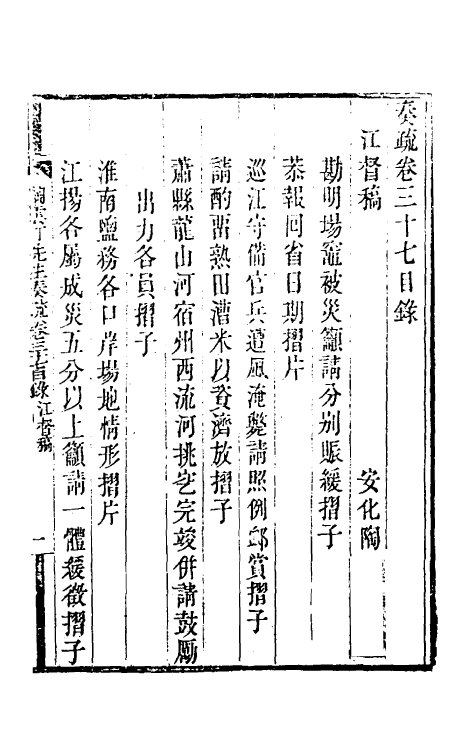 奏疏卷三十七目錄
江督稿　安化陶
勘明場竈被災籲請分别賑緩摺子
恭報回省日期摺片
巡江守備官兵遭風淹斃請照例卹賞摺子
請酌留熟田漕米以資濟放摺子
蕭縣龍山河宿州西流河挑挖完竣併請鼓厲
出力各員摺子
淮南鹽務各口岸場地情形摺片
江揚各屬成災五分以上籲請一體緩徵摺子
先生奏疏卷三十七目錄江督稿　一